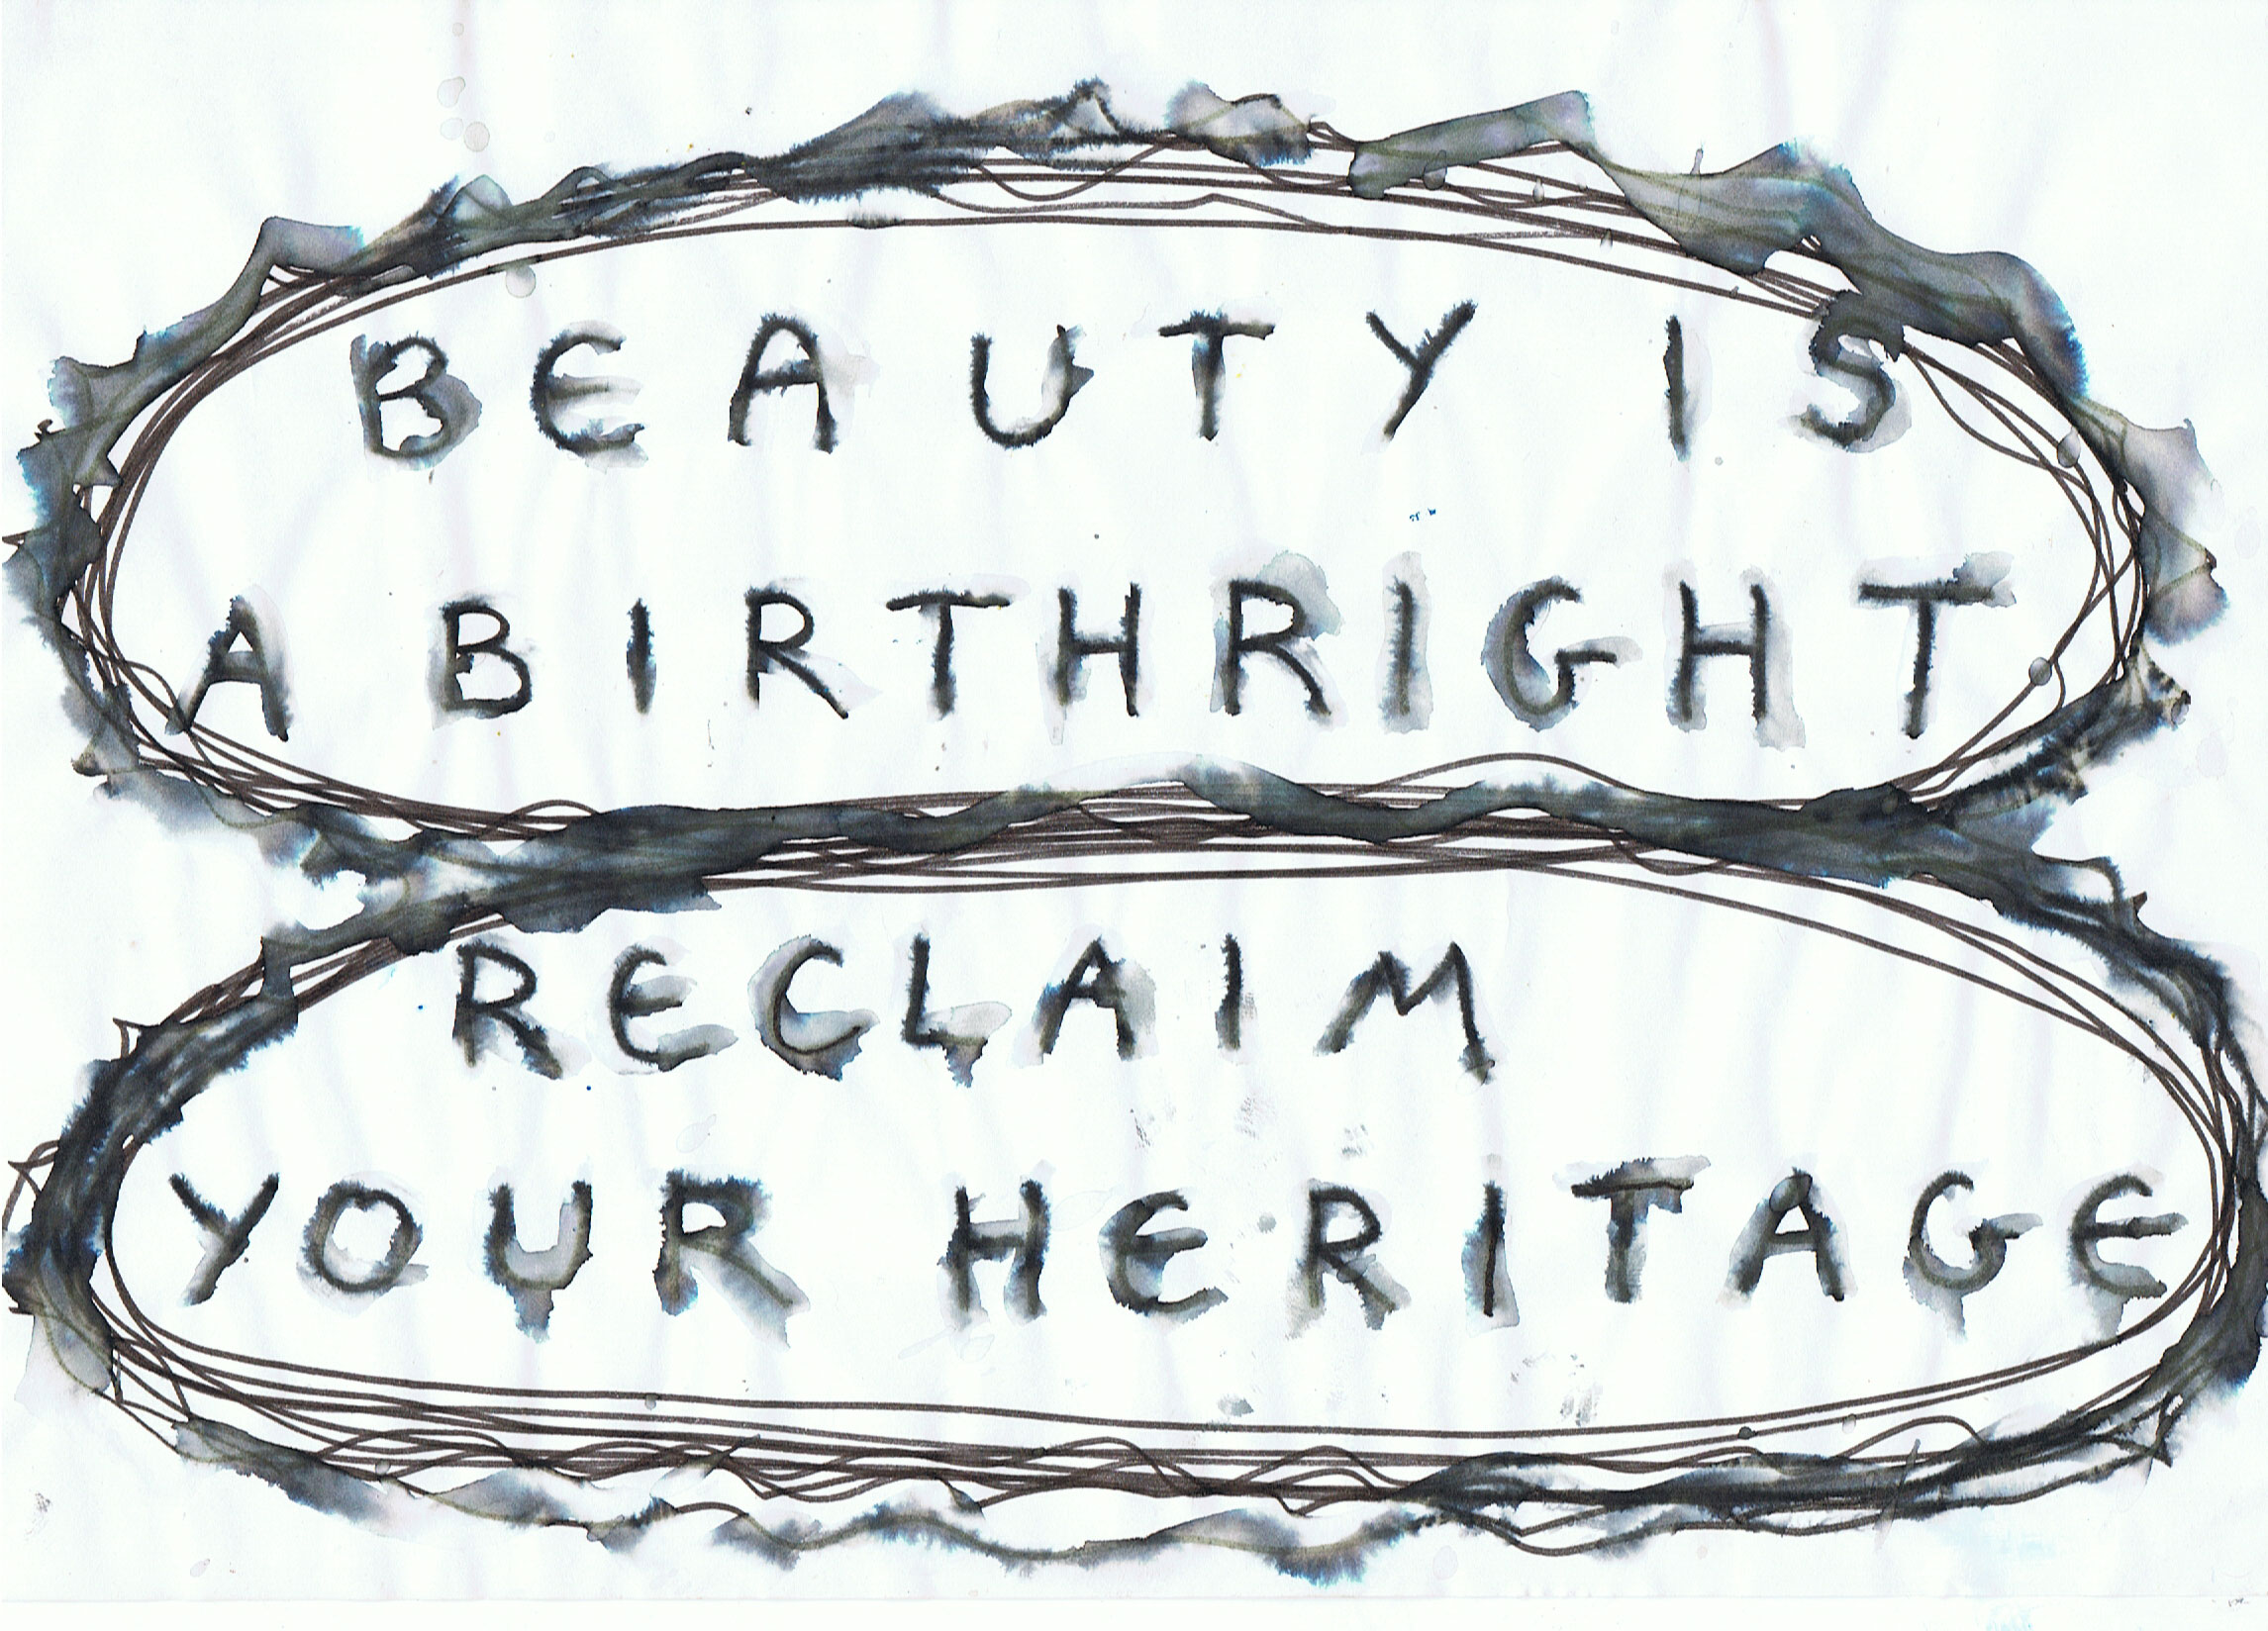 BEAUTY IS
A BIRTHRIGHT
RECLAIM
YOUR HERITAGE